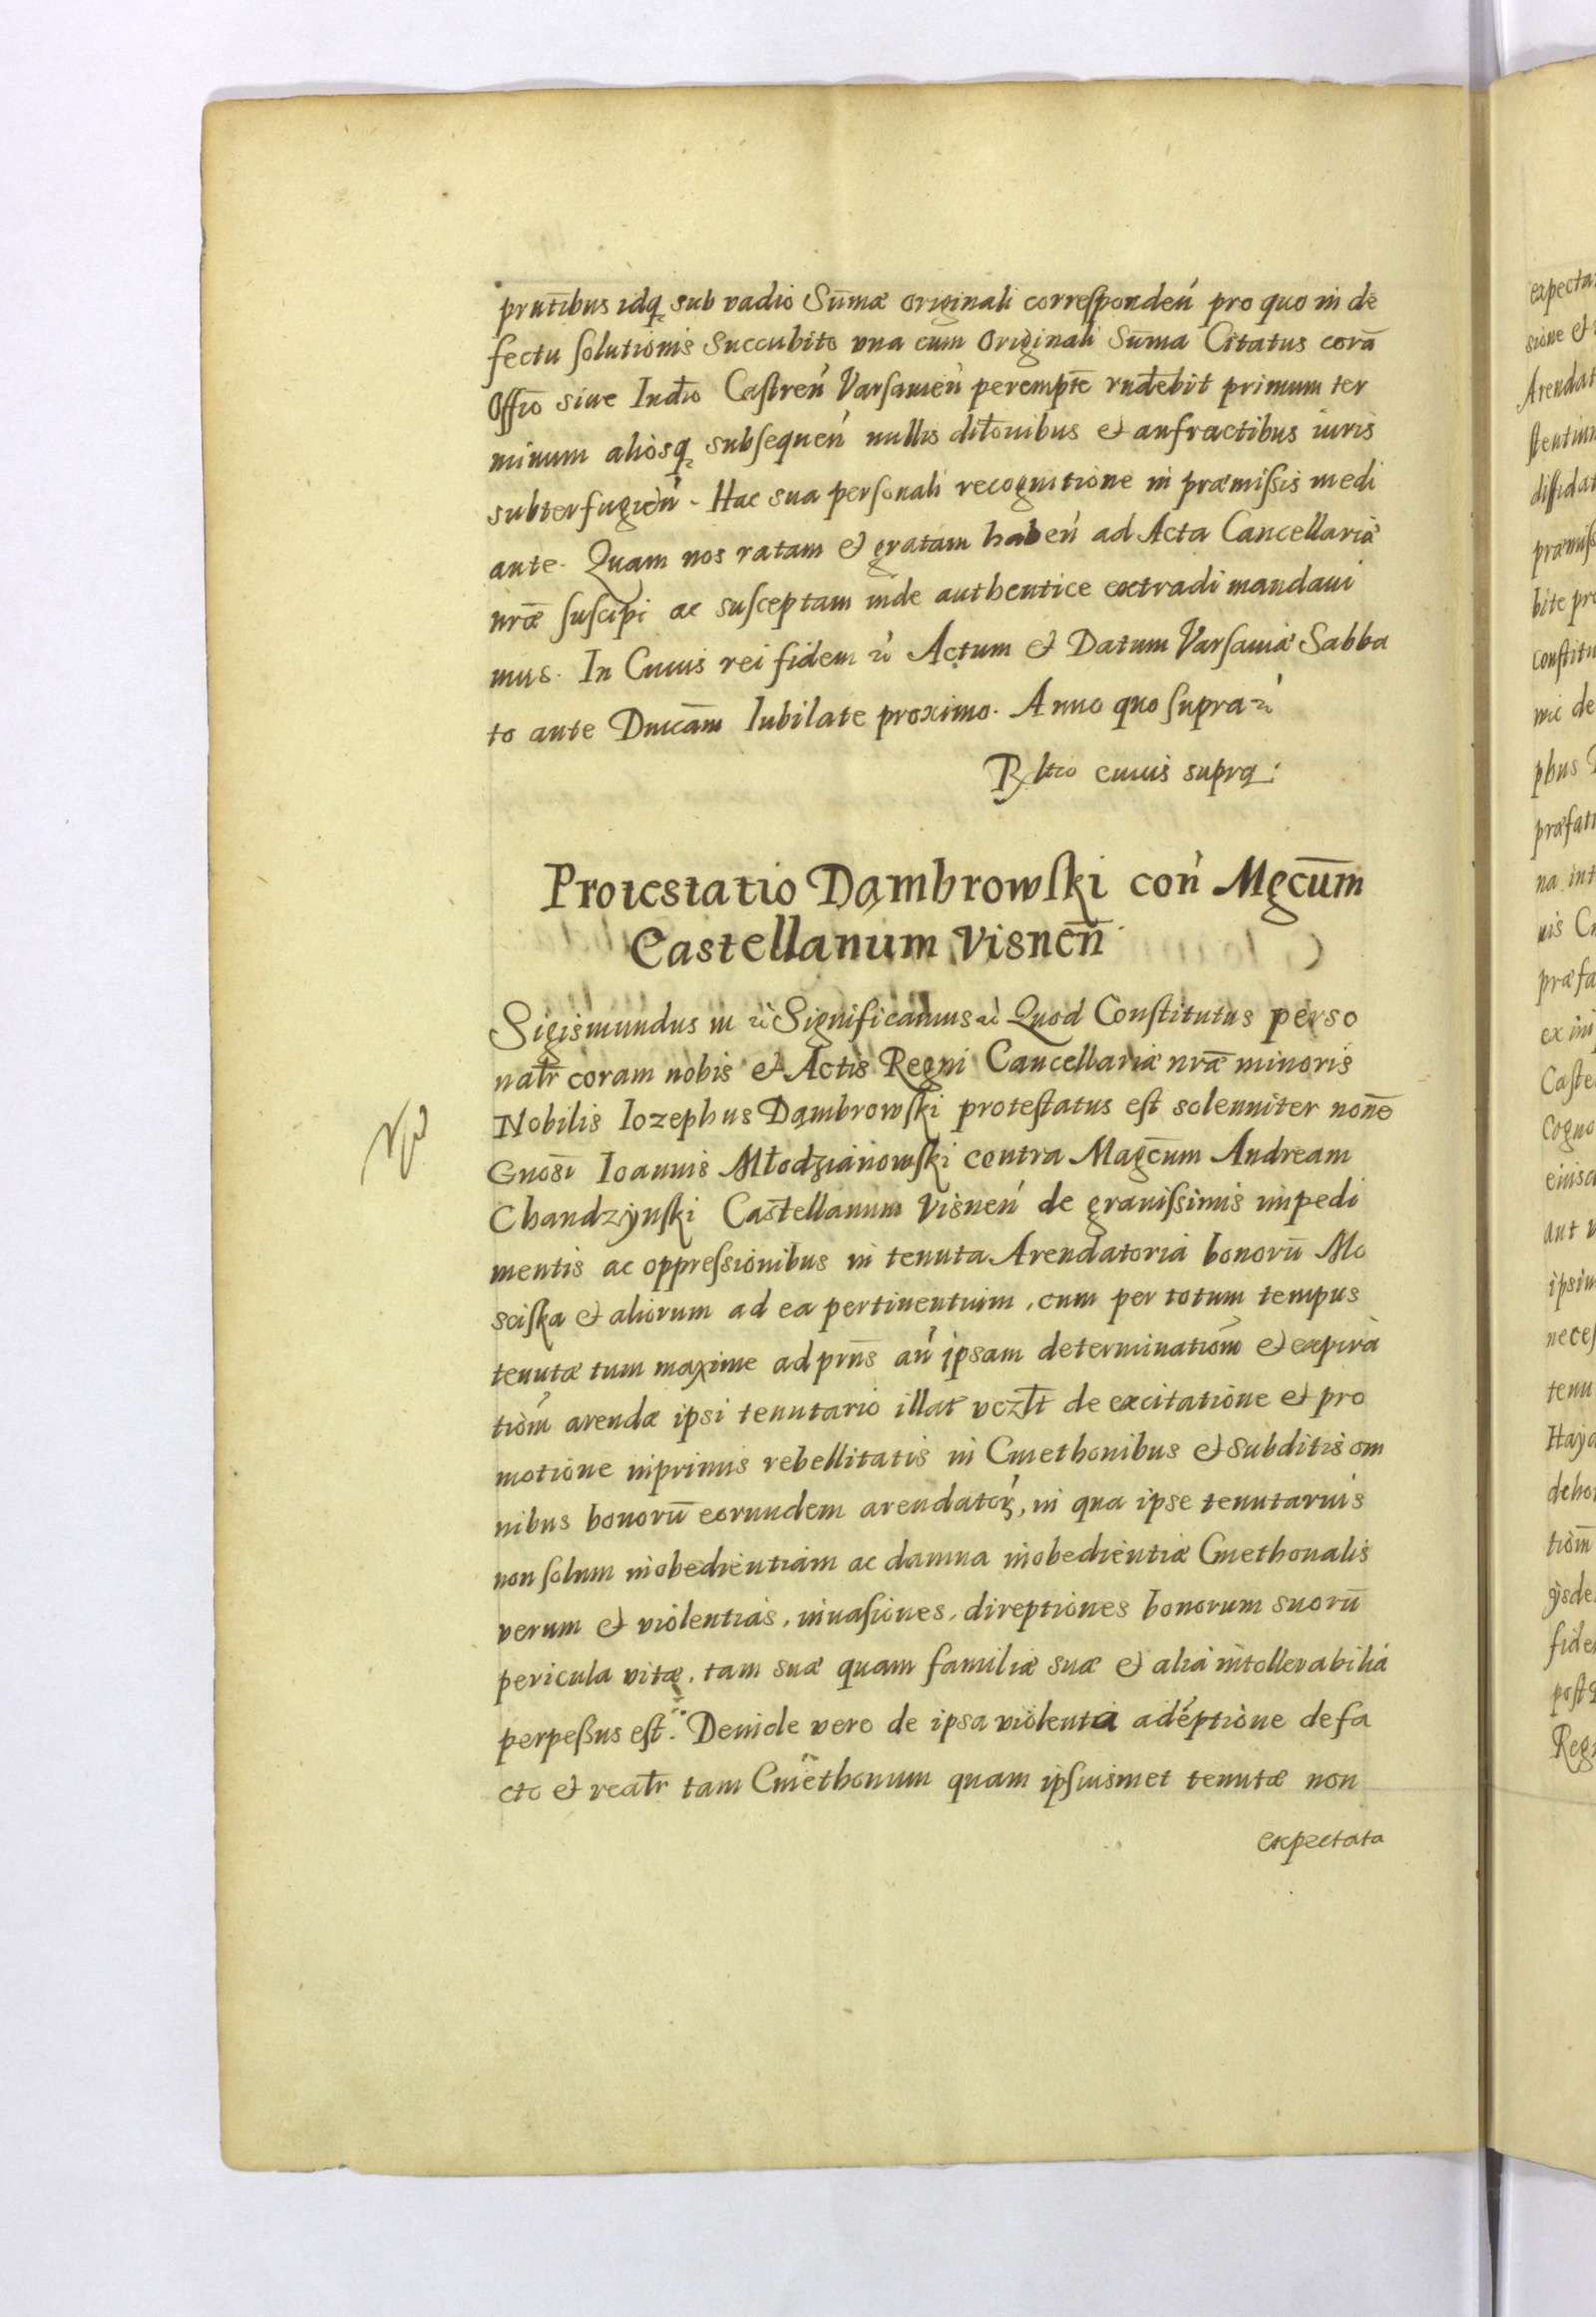 prntibus idq₃ sub vadio Sum̄æ originali correſponden̄ pro quo in de
fectu ſolutionis Succubito vna cum Originali Sum̄a Citatus corā
Offīo siue Iud̄io Caſtren̄ Varſauien̄ perempt̄e rnd̄ebit primum ter
minum aliosq₃ subſequen̄ nullis dil̄onibus et anfractibus iuris
subterfugien̄. Hac sua perſonali recognitione in præmiſsis medi
ante. Quam nos ratam et gratam haben̄ ad Acta Cancellariæ
nrǣ ſuſcipi ac suſceptam inde authentice extradi mandaui
mus. In Cuius rei fidem ꝛc̄ Actum et Datum Varſauiæ Sabba
to ante Dnicam̄ Iubilate proximo. Anno quo ſupra ꝛc̄
Rltio cuius supra:
Protestatio Dąmbrowſki con̄ Mgcum̄
Castellanum Visnen̄
Sigismundus III ꝛc̄ Significamus ꝛc̄ Quod Conſtitutus perso
nalr̄ coram nobis et Actis Regni Cancellariæ nrǣ minoris
Nobilis Iozephus Dąmbrowſki proteſtatus eſt solenniter non̄e
Gnosī Ioannis Młodzianowſki contra Magcūm Andream
Chandzÿnſki Castellanum Visnen̄ de grauiſsimis impedi
mentis ac oppreſsionibus in tenuta Arendatoria bonorū Mo
sciſka et aliorum ad ea pertinentium, cum per totum tempus
tenutæ tum maxime ad prn̄s an̄ ipsam determination̄ et expira
tion̄ arendæ ipsi tenutario illat̄ vczl̄t de excitatione et pro
motione inprimis rebellitatis in Cmethonibus et Subditis om
nibus bonorū eorundem arendatoꝝ, in qua ipse tenutarius
non ſolum inobedientiam ac damna inobedientiæ Cmethonalis
verum et violentias, inuaſiones, direptiones bonorum suorū
pericula vitæ, tam suæ quam familiæ suæ et alia intollerabilia
perpeſsus eſt. Deinde vero de ipsa violenta adēptione de fa
cto et realr̄ tam Cmethonum quam ipſiusmet tenutæ non
expectata